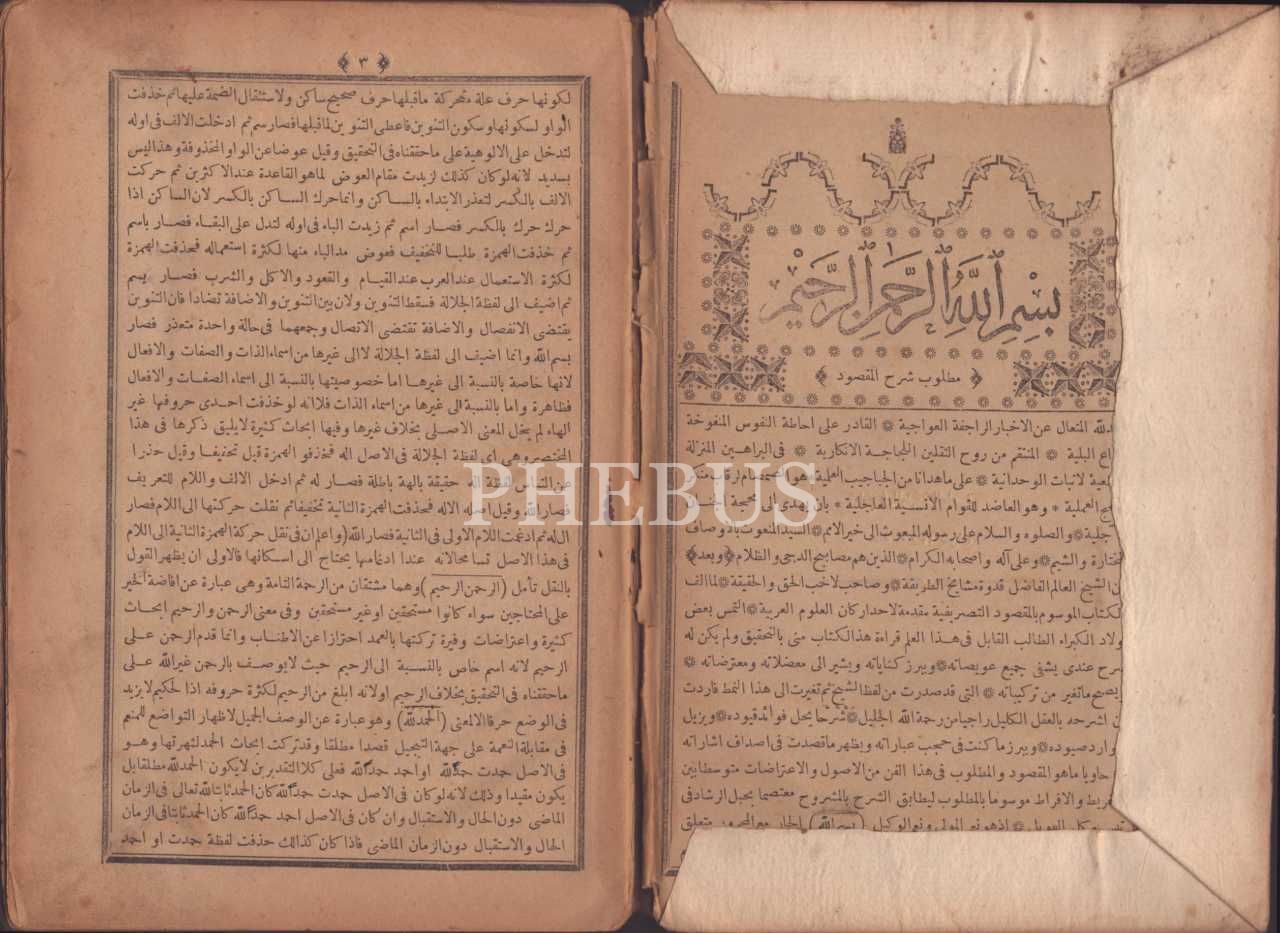 بسم الله الرحمن الرحيم
﴿ مطلوب شرح المقصود ﴾
لله المتعال عن الاخبار الراجفة العواجية * القادر على احاطة النفوس المنفوخة
اع البلية * المنتقم من روح الثقلين اللجاجة الانكارية * فى البراهين المنزلة
لاثبات الوحدانية * على ماهدانا من
العملية * وهو العاضد للقوام الانسية العاجلية * بان يهدى الى
جلية * والصلوه والسلام على رسوله المبعوث الى خير الامم * السيد المنعوت باوصاف
ختارة والشيم * وعلى آله واصحابه الكرام * الذين هم مصابيح الدجى والظلام ﴿ وبعد ﴾
ن الشيخ العالم الفاضل قدوة مشايخ الطريقة * وصاحب لاخب الحق والحقيقة * لما الف
لكتاب الموسوم بالمقصود التصريفية مقدمة لاحد اركان العلوم العربية * التمس بعض
ولاد الكبراء الطالب القابل فى هذا العلم قراءة هذ الكتاب منى بالتحقيق ولم يكن له
سرح عندى يشفى جميع عويصاته * ويبرز كناياته ويشير الى معضلاته ومعترضاته *
يصح ماتغير من تركيباته * التى قد صدرت من لفظ الشيخ ثم تغيرت الى هذا النمط فاردت
ن اشرحه بالعقل الكليل راجيا من رحمة الله الجليل * شرحا يحل فوائد قيوده * ويزيل
وارد صيوده * ويبرز ما كنت فى حجب عباراته ويظهر ماقصدت فى اصداف اشاراته
حاويا ماهو المقصود والمطلوب فى هذا الفن من الاصول والاعتراضات متوسطا بين
فريط والافراط موسوما بالمطلوب ليطابق الشرح بالمشروح معتصما بحبل ارشاد فى
اذ هو نعم المولى ونعم الوكيل (بسم الله) الجار مع المجرور متعلق
﴿ ٣ ﴾
لكونها حرف علة متحركة ماقبلها حرف صحيح ساكن ولاستثقال الضمة عليها ثم حذفت
الواو لسكونها وسكون التنوين فاعطى التنوين لما قبلها فصار سم ثم ادخلت الالف فى اوله
لتدخل على الالوهية على ماحققناه فى التحقيق وقيل عوضا عن الواو المحذوفة وهذا ليس
بسديد لانه لو كان كذلك لزيدت مقام العوض لما هو القاعدة عند الاكثرين ثم حركت
الالف بالكسر لتعذر الابتداء بالساكن وانما حرك الساكن بالكسر لان الساكن اذا
حرك حرك بالكسر فصار اسم ثم زيدت الباء فى اوله لتدل على البقاء فصار باسم
ثم حذفت الهمزة طلبا للتخفيف فعوض مد الباء منها لكثرة استعماله فحذفت الهمزة
لكثرة الاستعمال عند العرب عند القيام والقعود والاكل والشرب فصار بسم
ثم اضيف الى لفظة الجلالة فسقط التنوين ولان بين التنوين والاضافة تضادا فان التنوين
يقتضى الانفصال والاضافة تقتضى الاتصال وجمعهما فى حالة واحدة متعذر فصار
بسم الله وانما اضيف الى لفظة الجلالة لا الى غيرها من اسماء الذات والصفات والافعال
لانها خاصة بالنسبة الى غيرها اما خصوصيتها بالنسبة الى اسماء الصفات والافعال
فظاهرة واما بالنسبة الى غيرها من اسماء الذات فلانه لو حذفت احدى حروفها غير
الهاء لم يخل المعنى الاصلى بخلاف غيرها وفيها ابحاث كثيرة لايليق ذكرها فى هذا
المختصر وهى اى لفظة الجلالة فى الاصل اله فحذفوا الهمزة قيل تخفيفا وقيل حذرا
عن التباس لفظة اله حقيقة بالهة باطلة فصار له ثم ادخل الالف واللام للتعريف
فصار الله وقيل اصله الاله فحذفت الهمزة الثانية تخفيفا ثم نقلت حركتها الى اللام فصار
الله ثم ادغمت اللام الاولى فى الثانية فصار الله (واعلم ان فى نقل حركة الهمزة الثانية الى اللام
فى هذا الاصل تسامحا لانه عند ادغامها يحتاج الى اسكانها فالاولى ان يظهر القول
بالنقل تأمل (الرحمن الرحيم) وهما مشتقان من الرحمة التامة وهى عبارة عن افاضة الخير
على المحتاجين سواء كانوا مستحقين او غير مستحقين وفى معنى الرحمن والرحيم ابحاث
كثيرة واعتراضات وفيرة تركتها بالعمد احترازا عن الاطناب وانما قدم الرحمن على
الرحيم لانه اسم خاص بالنسبة الى الرحيم حيث لايوصف بالرحمن غير الله على
ماحققناه فى التحقيق بخلاف الرحيم اولانه ابلغ من الرحيم لكثرة حروفه اذا الحكيم لايزيد
فى الوضع حرفا الا لمعنى (الحمد لله) وهو عبارة عن الوصف الجميل لاظهار التواضع للمنعم
فى مقابلة النعمة على جهة التبجيل قصدا مطلقا وقد تركت ابحاث الحمد لشهرتها وهو
فى الاصل حمدت حمدا لله او احمد حمدا لله فعلى كلا التقديرين لا يكون الحمد لله مطلقا بل
يكون مقيدا وذلك لانه لو كان فى الاصل حمدت حمدا لله كان الحمد ثابتا لله تعالى فى الزمان
الماضى دون الحال والاستقبال وان كان فى الاصل احمد حمدا لله كان الحمد ثابتا فى الزمان
الحال والاستقبال دون الزمان الماضى فاذا كان كذلك حذفت لفظة حمدت او احمد
PHEBUS